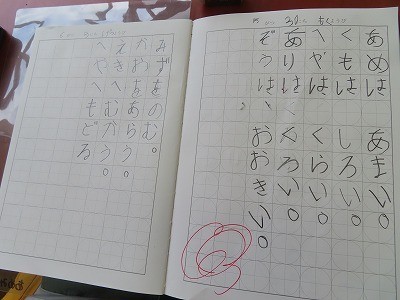 あめは あまい。
くもは しろい。
へやは くらい。
ありは くろい。
ぞうは、 おおきい。
みずをのむ。
かおをあらう。
えきへむかう。
へやへもどる